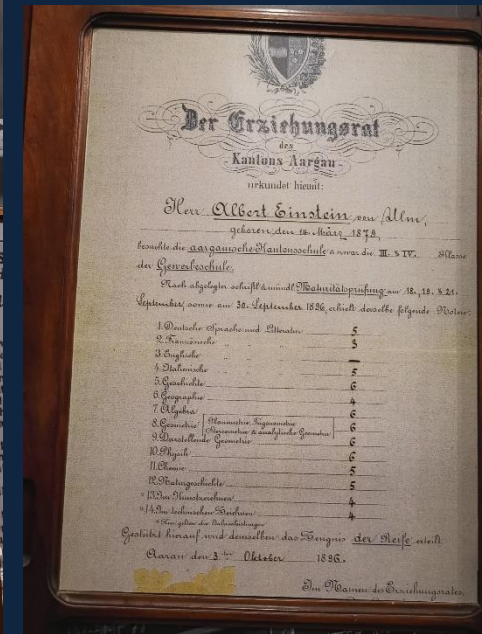 Der Erziehungsrat
des
Kantons Aargau
urkundet hiemit:
Herr Albert Einstein von Ulm,
geboren den 14. März 1879,
besuchte die aargauische Kantonsschule & zwar die III. & IV. Klasse
der Gewerbeschule.
Nach abgelegter schriftl. & mündl. Maturitätsprüfung am 18., 19. & 21.
September, sowie am 30. September 1896, erhielt derselbe folgende Noten:
1. Deutsche Sprache und Litteratur 5
2. Französische " " " 3
3. Englische " " " —
4. Italienische " " " 5
5. Geschichte 6
6. Geographie 4
7. Algebra 6
8. Geometrie (Planimetrie, Trigonometrie Stereometrie & analytische Geometrie) 6
9. Darstellende Geometrie 6
10. Physik 6
11. Chemie 5
12. Naturgeschichte 5
*13. Im Kunstzeichnen 4
*14. Im technischen Zeichnen 4
* Hier gelten die Jahresleistungen
Gestützt hierauf wird demselben das Zeugnis der Reife erteilt.
Aarau den 3ten Oktober 1896.
Im Namen des Erziehungsrates,